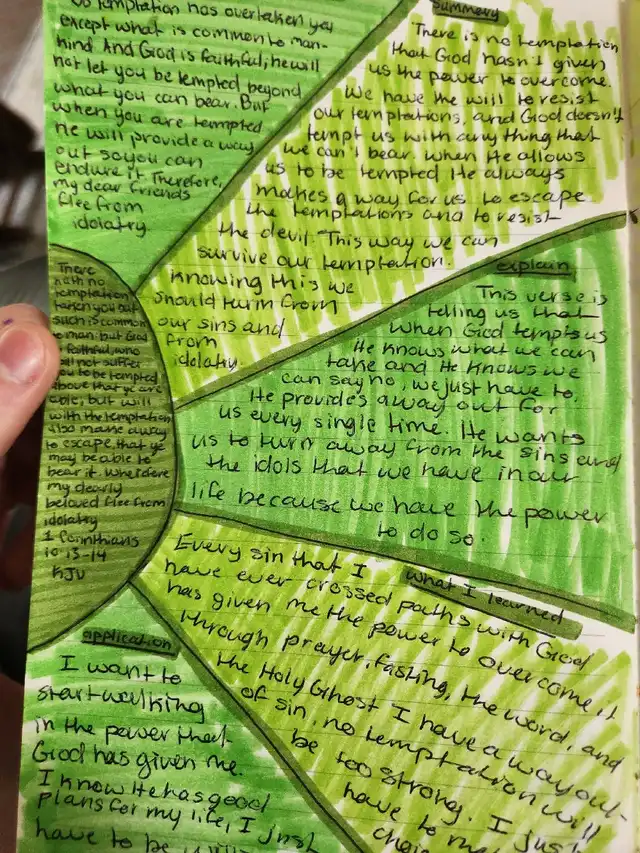 temptation has overtaken you
except what is common to man-
kind. And God is faithful; he will
not let you be tempted beyond
what you can bear. But
when you are tempted
he will provide a way
out so you can
endure it. Therefore,
my dear friends
flee from
idolatry
Summary
There is no temptation
that God hasn't given
us the power to overcome.
We have the will to resist
our temptations, and God doesn't
tempt us with any thing that
we can't bear. When He allows
us to be tempted He always
makes a way for us to escape
the temptations and to resist
the devil. This way we can
survive our temptation.
Knowing this we
should turn from
our sins and
from
idolatry.
There
hath no
temptation
taken you but
such is common
to man: but God
faithful, who
will not suffer
you to be tempted
above that ye are
able; but will
with the temptation
also make a way
to escape, that ye
may be able to
bear it. Wherefore
my dearly
beloved flee from
idolatry
1 Corinthians
10:13-14
KJV
explain
This verse is
telling us that
when God tempts us
He knows what we can
take and He knows we
can say no, we just have to.
He provides a way out for
us every single time. He wants
us to turn away from the sins and
the idols that we have in our
life because we have the power
to do so.
what I learned
Every sin that I
have ever crossed paths with God
has given me the power to overcome it
through prayer, fasting, the word, and
the Holy Ghost I have a way out
of sin, no temptation will
be too strong. I just
have to
application
I want to
start walking
in the power that
God has given me.
I know He has good
plans for my life, I just
have to be